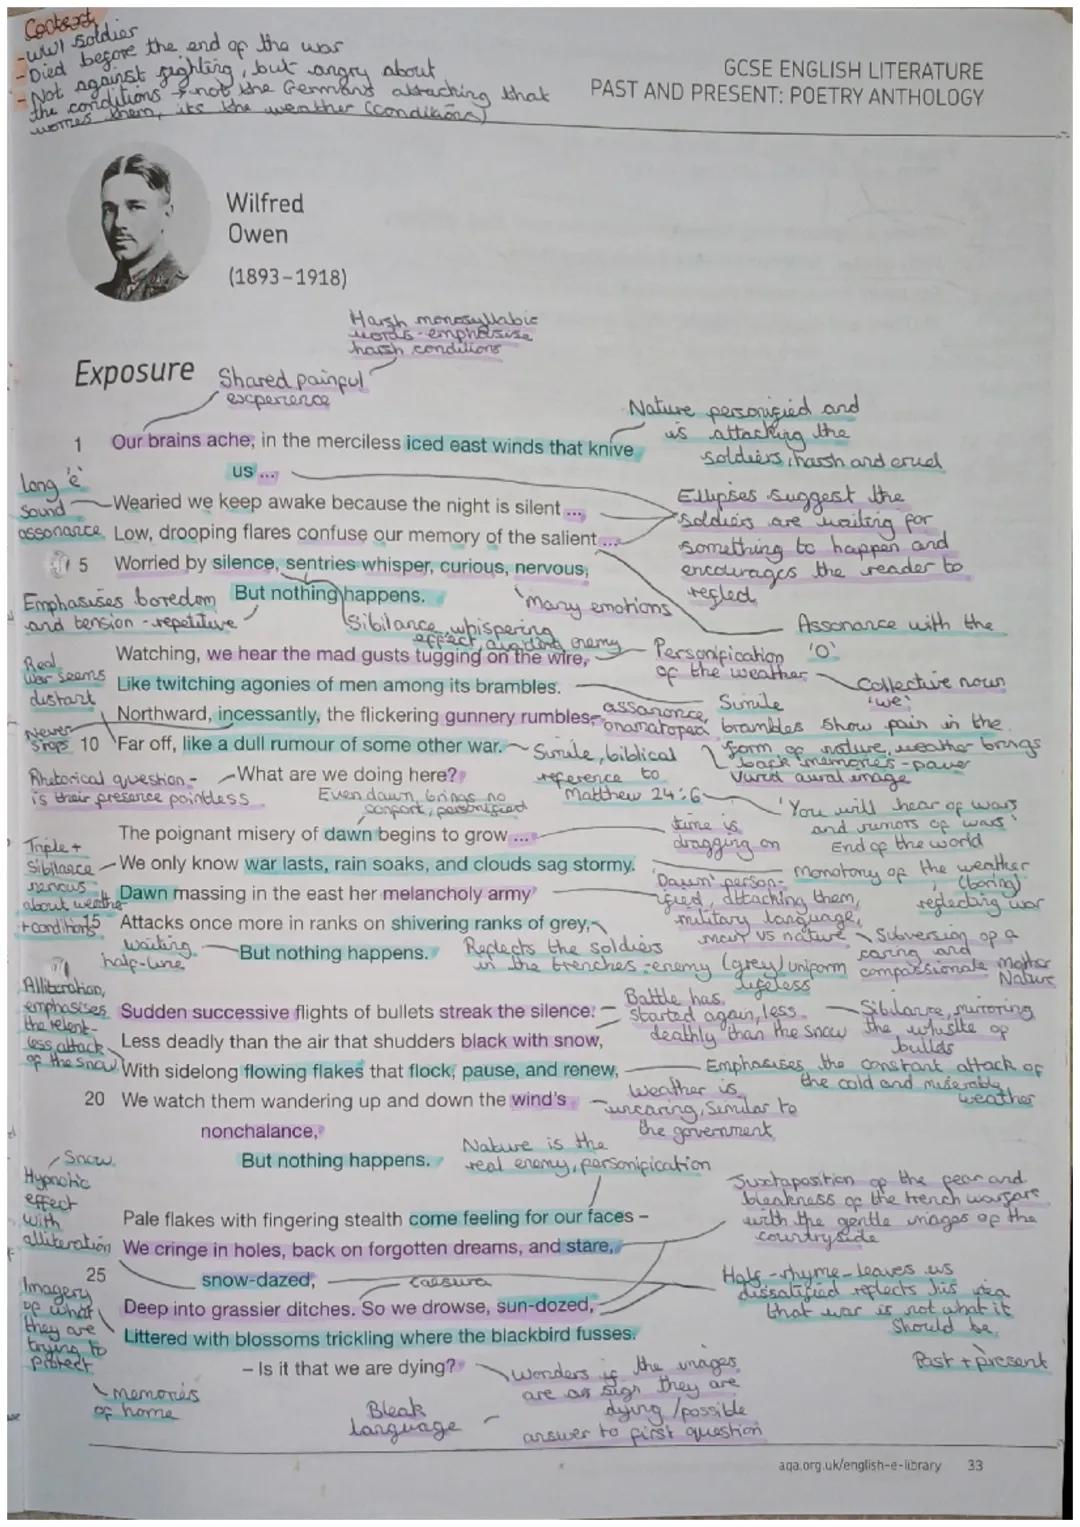 Context
-WW1 Soldier
-Died before the end of the war
-Not against fighting, but angry about
the conditions & not the Germans attacking that
worries them, its the weather (conditions)
GCSE ENGLISH LITERATURE
PAST AND PRESENT: POETRY ANTHOLOGY
Wilfred
Owen
(1893–1918)
Harsh monosyllabic
words - emphasise
harsh conditions
Exposure
Shared painful
experience
Nature personified and
is attacking the
soldiers, harsh and cruel
1 Our brains ache, in the merciless iced east winds that knive
us ...
long 'e'
sound
assonance
Wearied we keep awake because the night is silent ...
Low, drooping flares confuse our memory of the salient ...
Ellipses suggest the
soldiers are waiting for
something to happen and
encourages the reader to
reflect
5 Worried by silence, sentries whisper, curious, nervous,
But nothing happens.
Emphasises boredom
and tension - repetitive
Sibilance, whispering
effect, avoiding enemy
Many emotions
Assonance with the
'O'
Watching, we hear the mad gusts tugging on the wire,
Personification
of the weather
Collective noun
'we'
Real
war seems
distant
Like twitching agonies of men among its brambles.
Simile
brambles show pain in the
form of nature, weather brings
back memories - power
vivid aural image
Northward, incessantly, the flickering gunnery rumbles,
assonance,
onamatopea
Never
stops
10 Far off, like a dull rumour of some other war.
Simile, biblical
reference to
Matthew 24:6
'You will hear of wars
and rumors of wars'
End of the world
What are we doing here?
Rhetorical question -
is their presence pointless
Even dawn brings no
comfort, personified
The poignant misery of dawn begins to grow ...
time is
dragging on
Triple +
Sibilance
nervous
about weather
+ conditions
We only know war lasts, rain soaks, and clouds sag stormy.
Monotony of the weather
(boring)
reflecting war
Dawn massing in the east her melancholy army
'Dawn' person-
ified, attacking them,
military language,
man vs nature
Subversion of a
caring and
compassionate Mother
Nature
15 Attacks once more in ranks on shivering ranks of grey,
But nothing happens.
waiting
half-line
Reflects the soldiers
in the trenches - enemy (grey) uniform
lifeless
Alliteration,
emphasises
the relent-
less attack
of the snow
Sudden successive flights of bullets streak the silence.
Battle has
started again, less
deathly than the snow
Sibilance, mirroring
the whistle of
bullets
Less deadly than the air that shudders black with snow,
With sidelong flowing flakes that flock, pause, and renew,
Emphasises the constant attack of
the cold and miserable
weather
20 We watch them wandering up and down the wind's
nonchalance,
weather is
uncaring, similar to
the government
But nothing happens.
Nature is the
real enemy, personification
Snow
Hypnotic
effect
with
alliteration
Juxtaposition of the fear and
bleakness of the trench warfare
with the gentle images of the
countryside
Pale flakes with fingering stealth come feeling for our faces –
We cringe in holes, back on forgotten dreams, and stare,
25 snow-dazed,
caesura
Half-rhyme - leaves us
dissatified reflects his idea
that war is not what it
should be
Deep into grassier ditches. So we drowse, sun-dozed,
Littered with blossoms trickling where the blackbird fusses.
Imagery
of what
they are
trying to
protect
– Is it that we are dying?
Wonders if the images
are as sign they are
dying / possible
answer to first question
Past + present
memories
of home
Bleak
language
aqa.org.uk/english-e-library 33